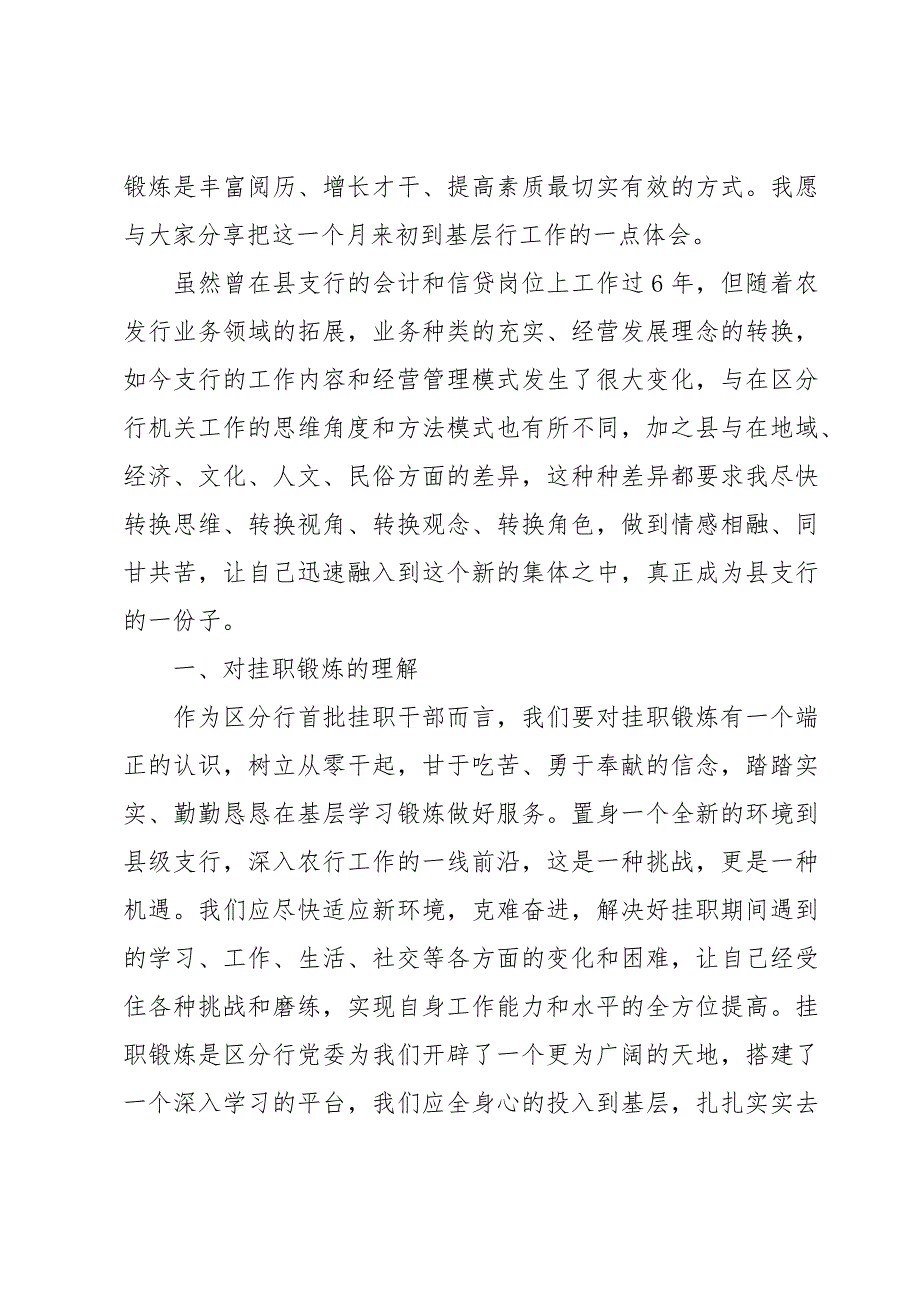 锻炼是丰富阅历、增长才干、提高素质最切实有效的方式。我愿
与大家分享把这一个月来初到基层行工作的一点体会。
虽然曾在县支行的会计和信贷岗位上工作过 6 年，但随着农
发行业务领域的拓展，业务种类的充实、经营发展理念的转换，
如今支行的工作内容和经营管理模式发生了很大变化，与在区分
行机关工作的思维角度和方法模式也有所不同，加之县与在地域、
经济、文化、人文、民俗方面的差异，这种种差异都要求我尽快
转换思维、转换视角、转换观念、转换角色，做到情感相融、同
甘共苦，让自己迅速融入到这个新的集体之中，真正成为县支行
的一份子。
一、对挂职锻炼的理解
作为区分行首批挂职干部而言，我们要对挂职锻炼有一个端
正的认识，树立从零干起，甘于吃苦、勇于奉献的信念，踏踏实
实、勤勤恳恳在基层学习锻炼做好服务。置身一个全新的环境到
县级支行，深入农行工作的一线前沿，这是一种挑战，更是一种
机遇。我们应尽快适应新环境，克难奋进，解决好挂职期间遇到
的学习、工作、生活、社交等各方面的变化和困难，让自己经受
住各种挑战和磨练，实现自身工作能力和水平的全方位提高。挂
职锻炼是区分行党委为我们开辟了一个更为广阔的天地，搭建了
一个深入学习的平台，我们应全身心的投入到基层，扎扎实实去